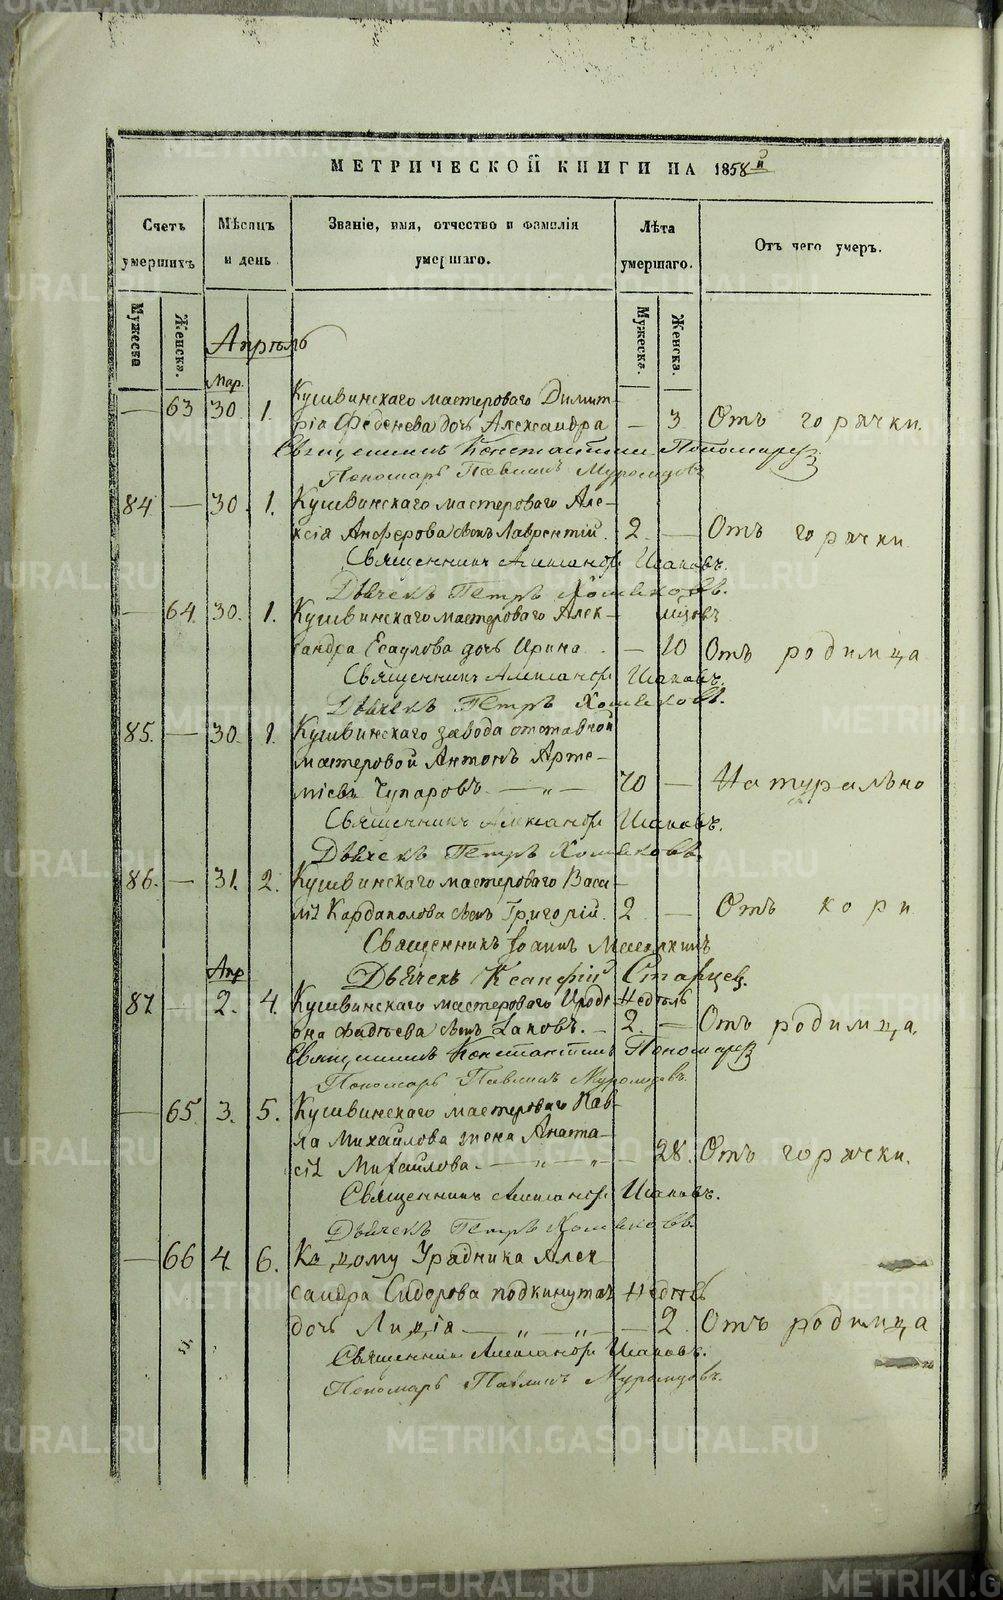 МЕТРИЧЕСКОЙ КНИГИ НА 1858й
Счетъ умершихъ
Мѣсяцъ и день
Званіе, имя, отчество и фамилія умершаго.
Лѣта умершаго.
Отъ чего умеръ.
Мужеска
Женска.
Мужеск.
Женска.
Апрѣль
Мар.
Кушвинскаго мастероваго Димит-
— 63 30. 1. рія Феденева дочь Александра — 3 Отъ горячки.
Священникъ Константинъ Пономаревъ
Пономарь Павлинъ Муромцовъ
84 — 30. 1. Кушвинскаго мастероваго Але-
ксія Анферова сынъ Лаврентій. 2. — Отъ горячки
Священникъ Александръ Исаковъ.
Дьячекъ Петръ Хомяковъ.
— 64. 30. 1. Кушвинскаго мастероваго Алек- мѣсяцовъ
сандра Есаулова дочь Ирина — 10 Отъ родимца
Священникъ Александръ Исаковъ.
Дьячекъ Петръ Хомяковъ.
85. — 30. 1. Кушвинскаго завода отставной
мастеровой Антонъ Арте-
міевъ Чупаровъ — „ — 70 — Натурально
Священникъ Александръ Исаковъ.
Дьячекъ Петръ Хомяковъ.
86. — 31. 2. Кушвинскаго мастероваго Васи-
лія Кардаполова сынъ Григорій. 2 — Отъ кори
Священникъ Іоаннъ
Апр Дьячекъ Ксанфій Старцев.
87 — 2. 4. Кушвинскаго мастероваго Иродi- Недѣль
она Фадѣева сынъ Іаковъ. — 2. — Отъ родимца.
Священникъ Константинъ Пономаревъ
Пономарь Павлинъ Муромцовъ.
— 65 3. 5. Кушвинскаго мастероваго Пав-
ла Михайлова жена Анаста-
сія Михайлова. — „ — „ — 28. Отъ горячки.
Священникъ Александръ Исаковъ.
Дьячекъ Петръ Хомяковъ.
— 66 4. 6. Къ дому Урядника Алек-
сандра Сидорова подкинутая Недѣль
дочь Лидія — „ — „ — 2 Отъ родимца
Священникъ Александръ Исаковъ.
Пономарь Павлинъ Муромцовъ.
METRIKI.GASO-URAL.RU